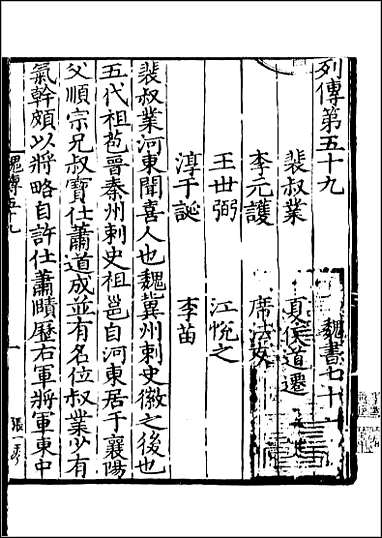 列傳第五十九 魏書七十一
裴叔業 夏侯道遷
李元護 席法友
王世弼 江悅之
淳于誕 李苗
裴叔業河東聞喜人也魏冀州刺史徽之後也
五代祖苞晉秦州刺史祖邕自河東居于襄陽
父順宗兄叔寶仕蕭道成並有名位叔業少有
氣幹頗以將略自許仕蕭賾歷右軍將軍東中
魏傳五十九 一